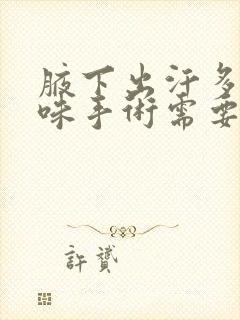 腋下出汗多
味手術需要
許贊